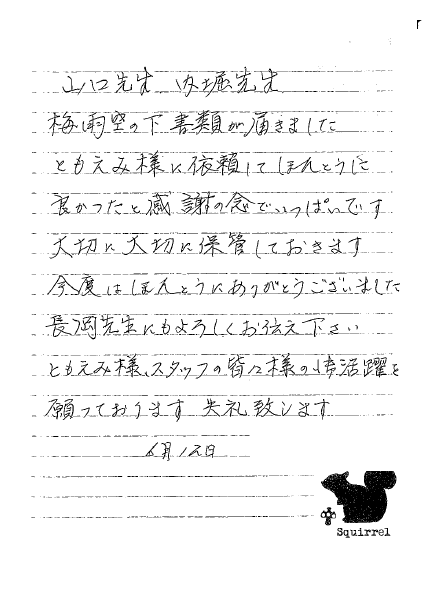 山口先生 内堀先生
梅雨空の下 書類が届きました
ともえみ様に依頼してほんとうに
良かったと感謝の念でいっぱいです
大切に大切に保管しておきます
今度はほんとうにありがとうございました
長岡先生にもよろしくお伝え下さい
ともえみ様、スタッフの皆々様の御活躍を
願っております 失礼致します
6月12日
Squirrel